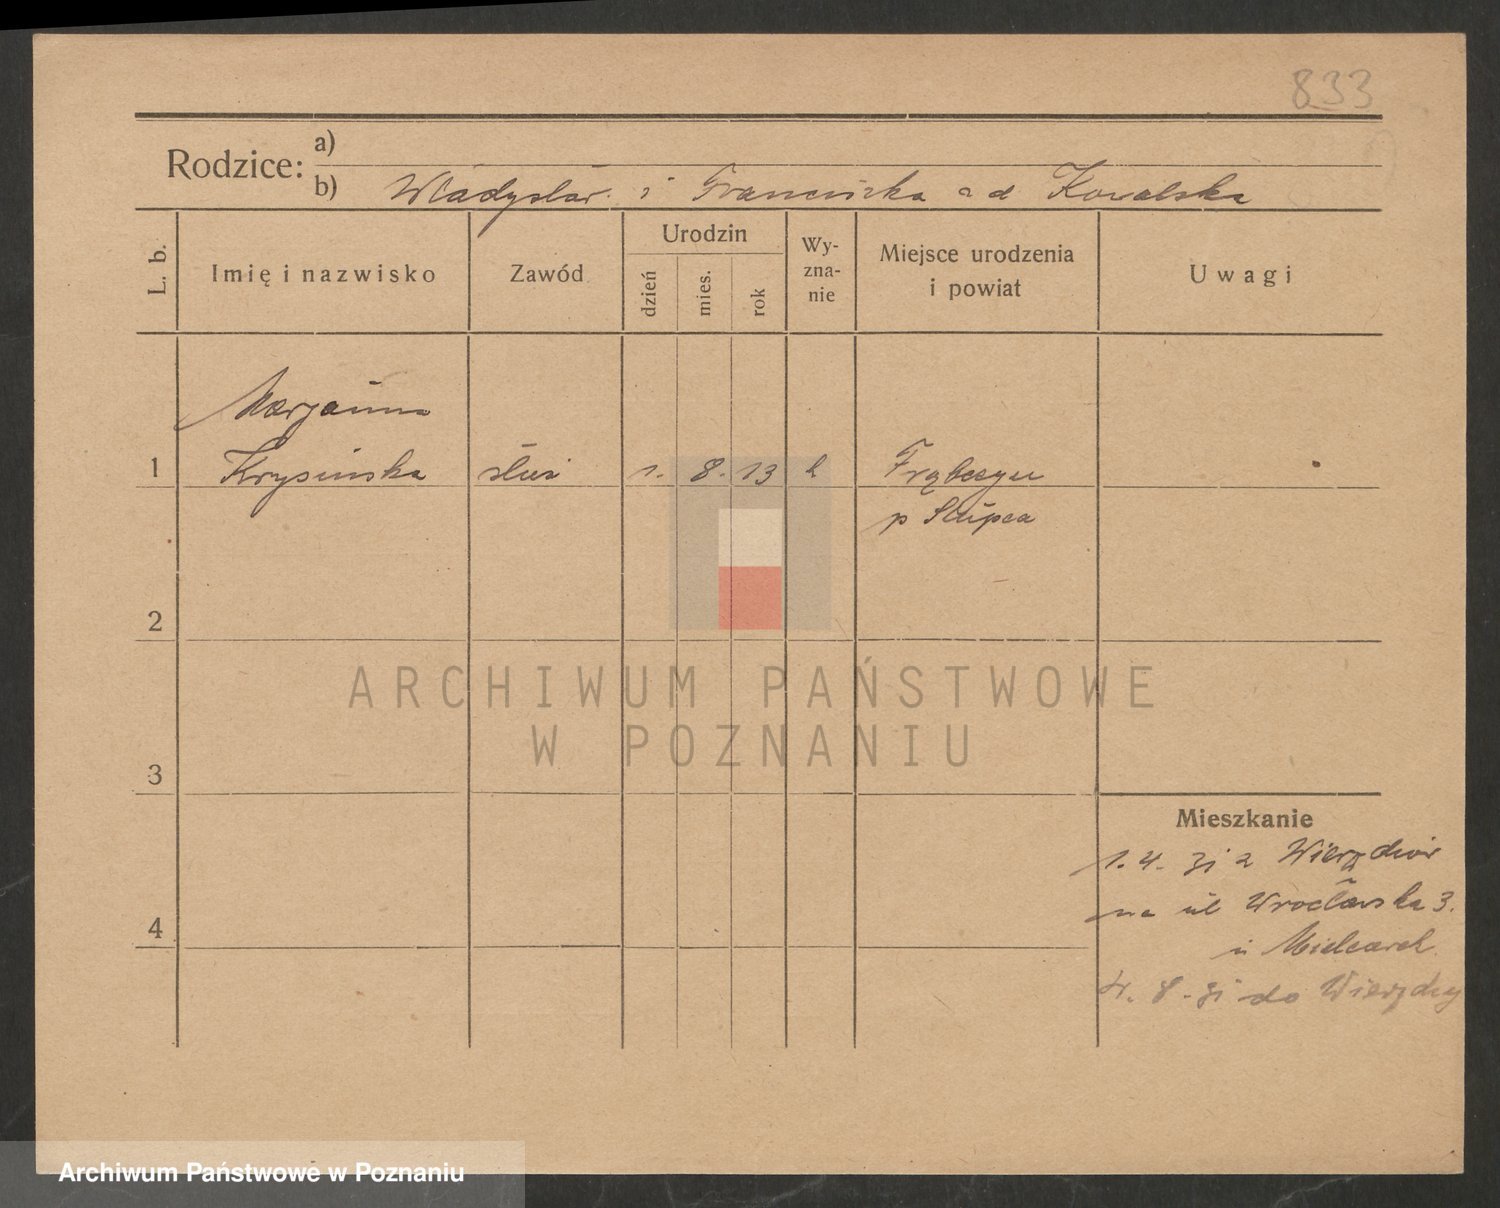 833
Rodzice: a)
b) Władysław i Franciszka z d Kowalska
L. b.
Imię i nazwisko
Zawód
Urodzin
dzień
mies.
rok
Wy-
zna-
nie
Miejsce urodzenia
i powiat
Uwagi
Marjanna
1 Krysińska służ 1. 8. 13 k
p Słupca
2
3
4
Mieszkanie
1.4. 31 z
na ul Wrocławska 3.
u Mielcarek
8. 31 do
ARCHIWUM PAŃSTWOWE
W POZNANIU
Archiwum Państwowe w Poznaniu